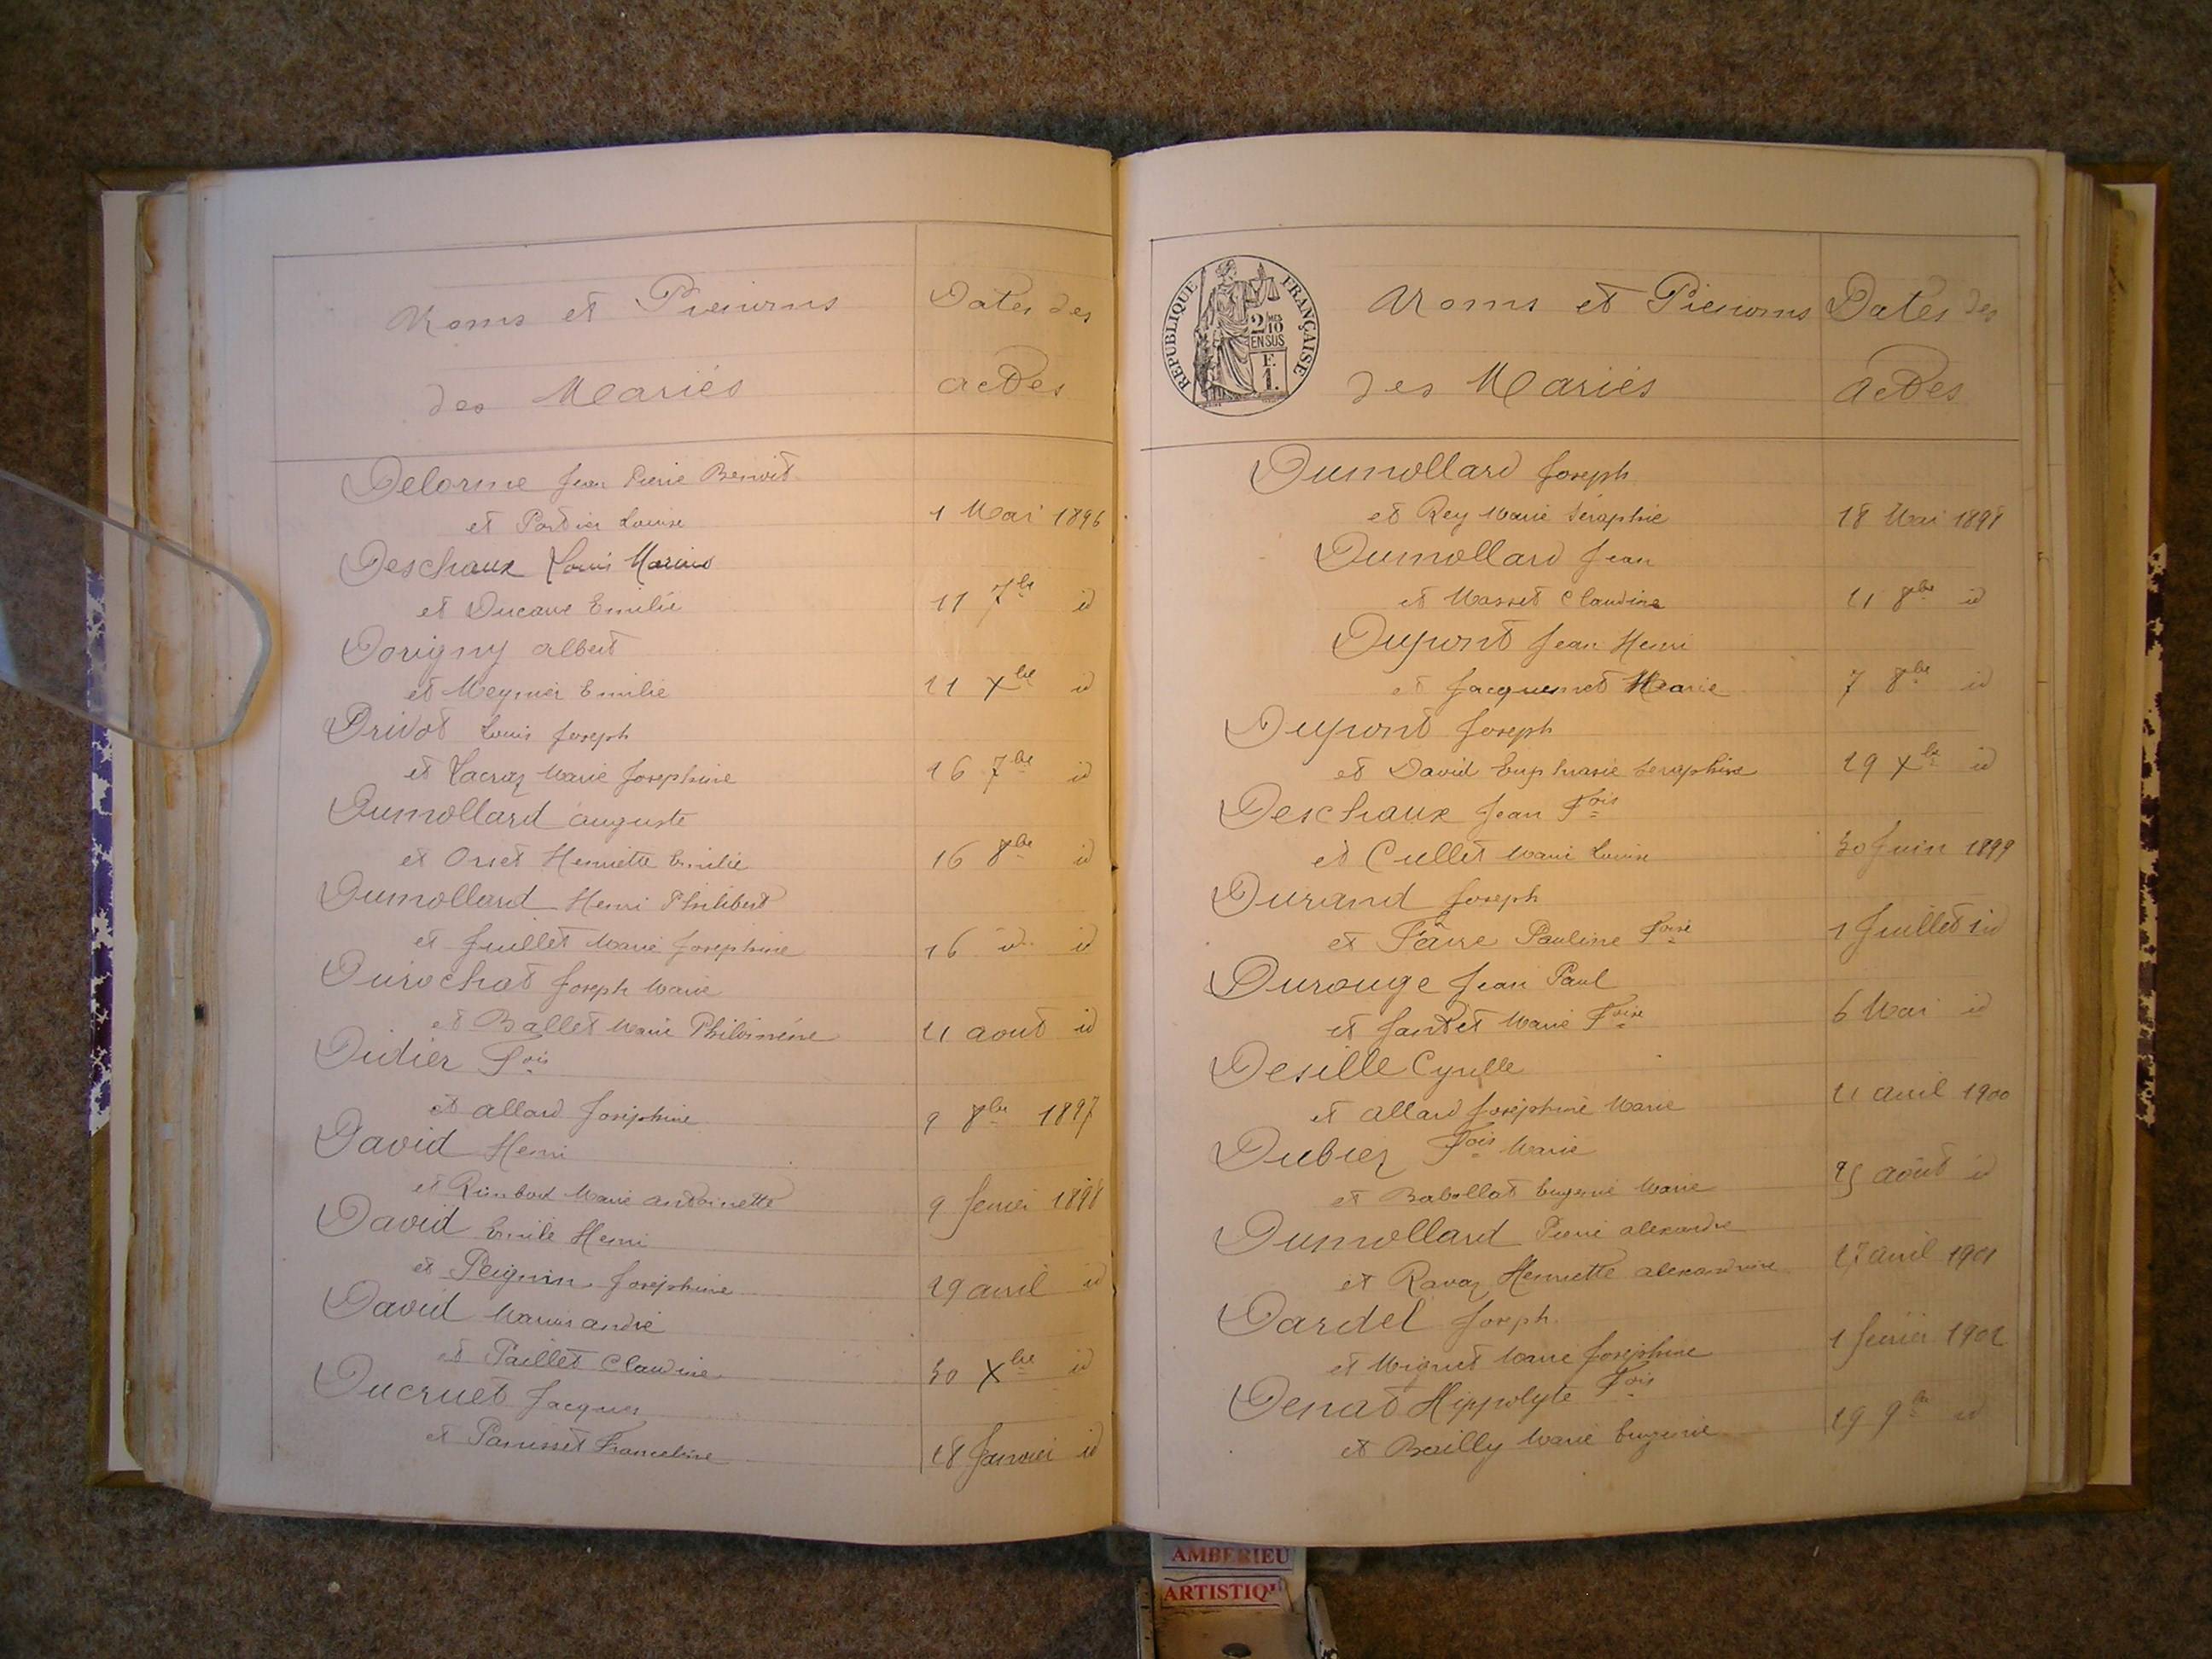 Noms et Prénoms
des Mariés
Dates des
actes
Delorme Jean Pierre Benoit
et Portier Louise
1 Mai 1896
Deschaux Louis Marius
et Ducarre Emilie
11 7bre id
Dorigny Albert
et Meynier Emilie
21 Xbre id
Drivot Louis Joseph
et Lacroz Marie Joséphine
26 7bre id
Dumollard Auguste
et Orset Henriette Emilie
16 8bre id
Dumollard Henri Philibert
et Juillet Marie Joséphine
16 id id
Durochat Joseph Marie
et Ballet Marie Philomène
21 aout id
Didier Fois
et Allard Joséphine
9 8bre 1897
David Henri
et Marie Antoinette
9 février 1898
David Emile Henri
et Peignin Joséphine
29 avril id
David Marius André
et Paillet Claudine
30 Xbre id
Ducruet Jacques
et Panisset Franceline
28 Janvier id
REPUBLIQUE FRANÇAISE
2/10
EN SUS
F.
1.
Noms et Prénoms
des Mariés
Dates des
actes
Dumollard Joseph
et Rey Marie Séraphie
18 Mai 1898
Dumollard Jean
et Masset Claudine
21 8bre id
Dupont Jean Henri
et Jacquemet Marie
7 8bre id
Dupont Joseph
et David Euphrasie Séraphine
29 Xbre id
Deschaux Jean Fois
et Cullet Marie Louise
30 Juin 1899
Durand Joseph
et Favre Pauline Foise
1 Juillet id
Durouge Jean Paul
et Jantet Marie Foise
6 Mai id
Desille Cyrille
et Allard Joséphine Marie
21 avril 1900
Dubiez Fois Marie
et Babollat Eugenie Marie
25 août id
Dumollard Pierre Alexandre
et Ravaz Henriette Alexandrine
27 avril 1901
Dardel Joseph
et Mignet Marie Joséphine
1 février 1902
Denat Hippolyte Fois
et Bailly Marie Eugenie
29 9bre id
AMBERIEU
ARTISTIQ